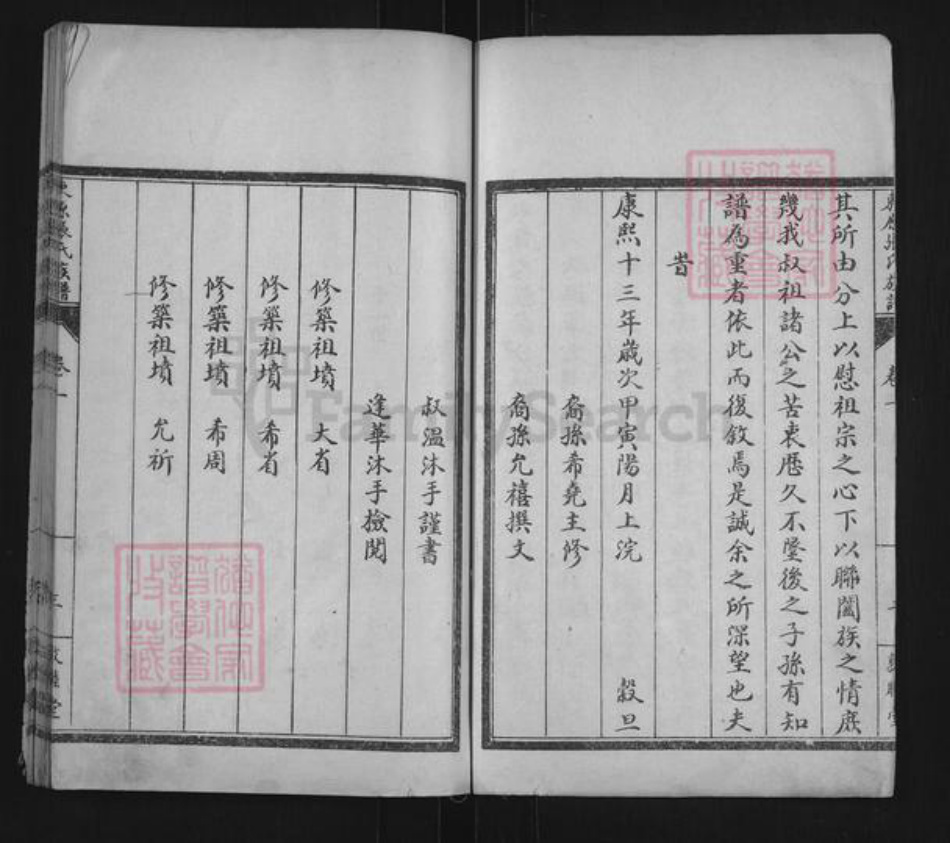 其所由分上以慰祖宗之心下以聯闔族之情庶
幾我叔祖諸公之苦衷歷久不墜後之子孫有知
譜為重者依此而復敘焉是誠余之所深望也夫
旹
康熙十三年歲次甲寅陽月上浣 穀旦
裔孫希堯主修
裔孫允禧撰文
叔溫沐手謹書
逢華沐手檢閱
修築祖墳 大省
修築祖墳 希省
修築祖墳 希周
修築祖墳 允祈
張氏族譜
卷一
三
FamilySearch